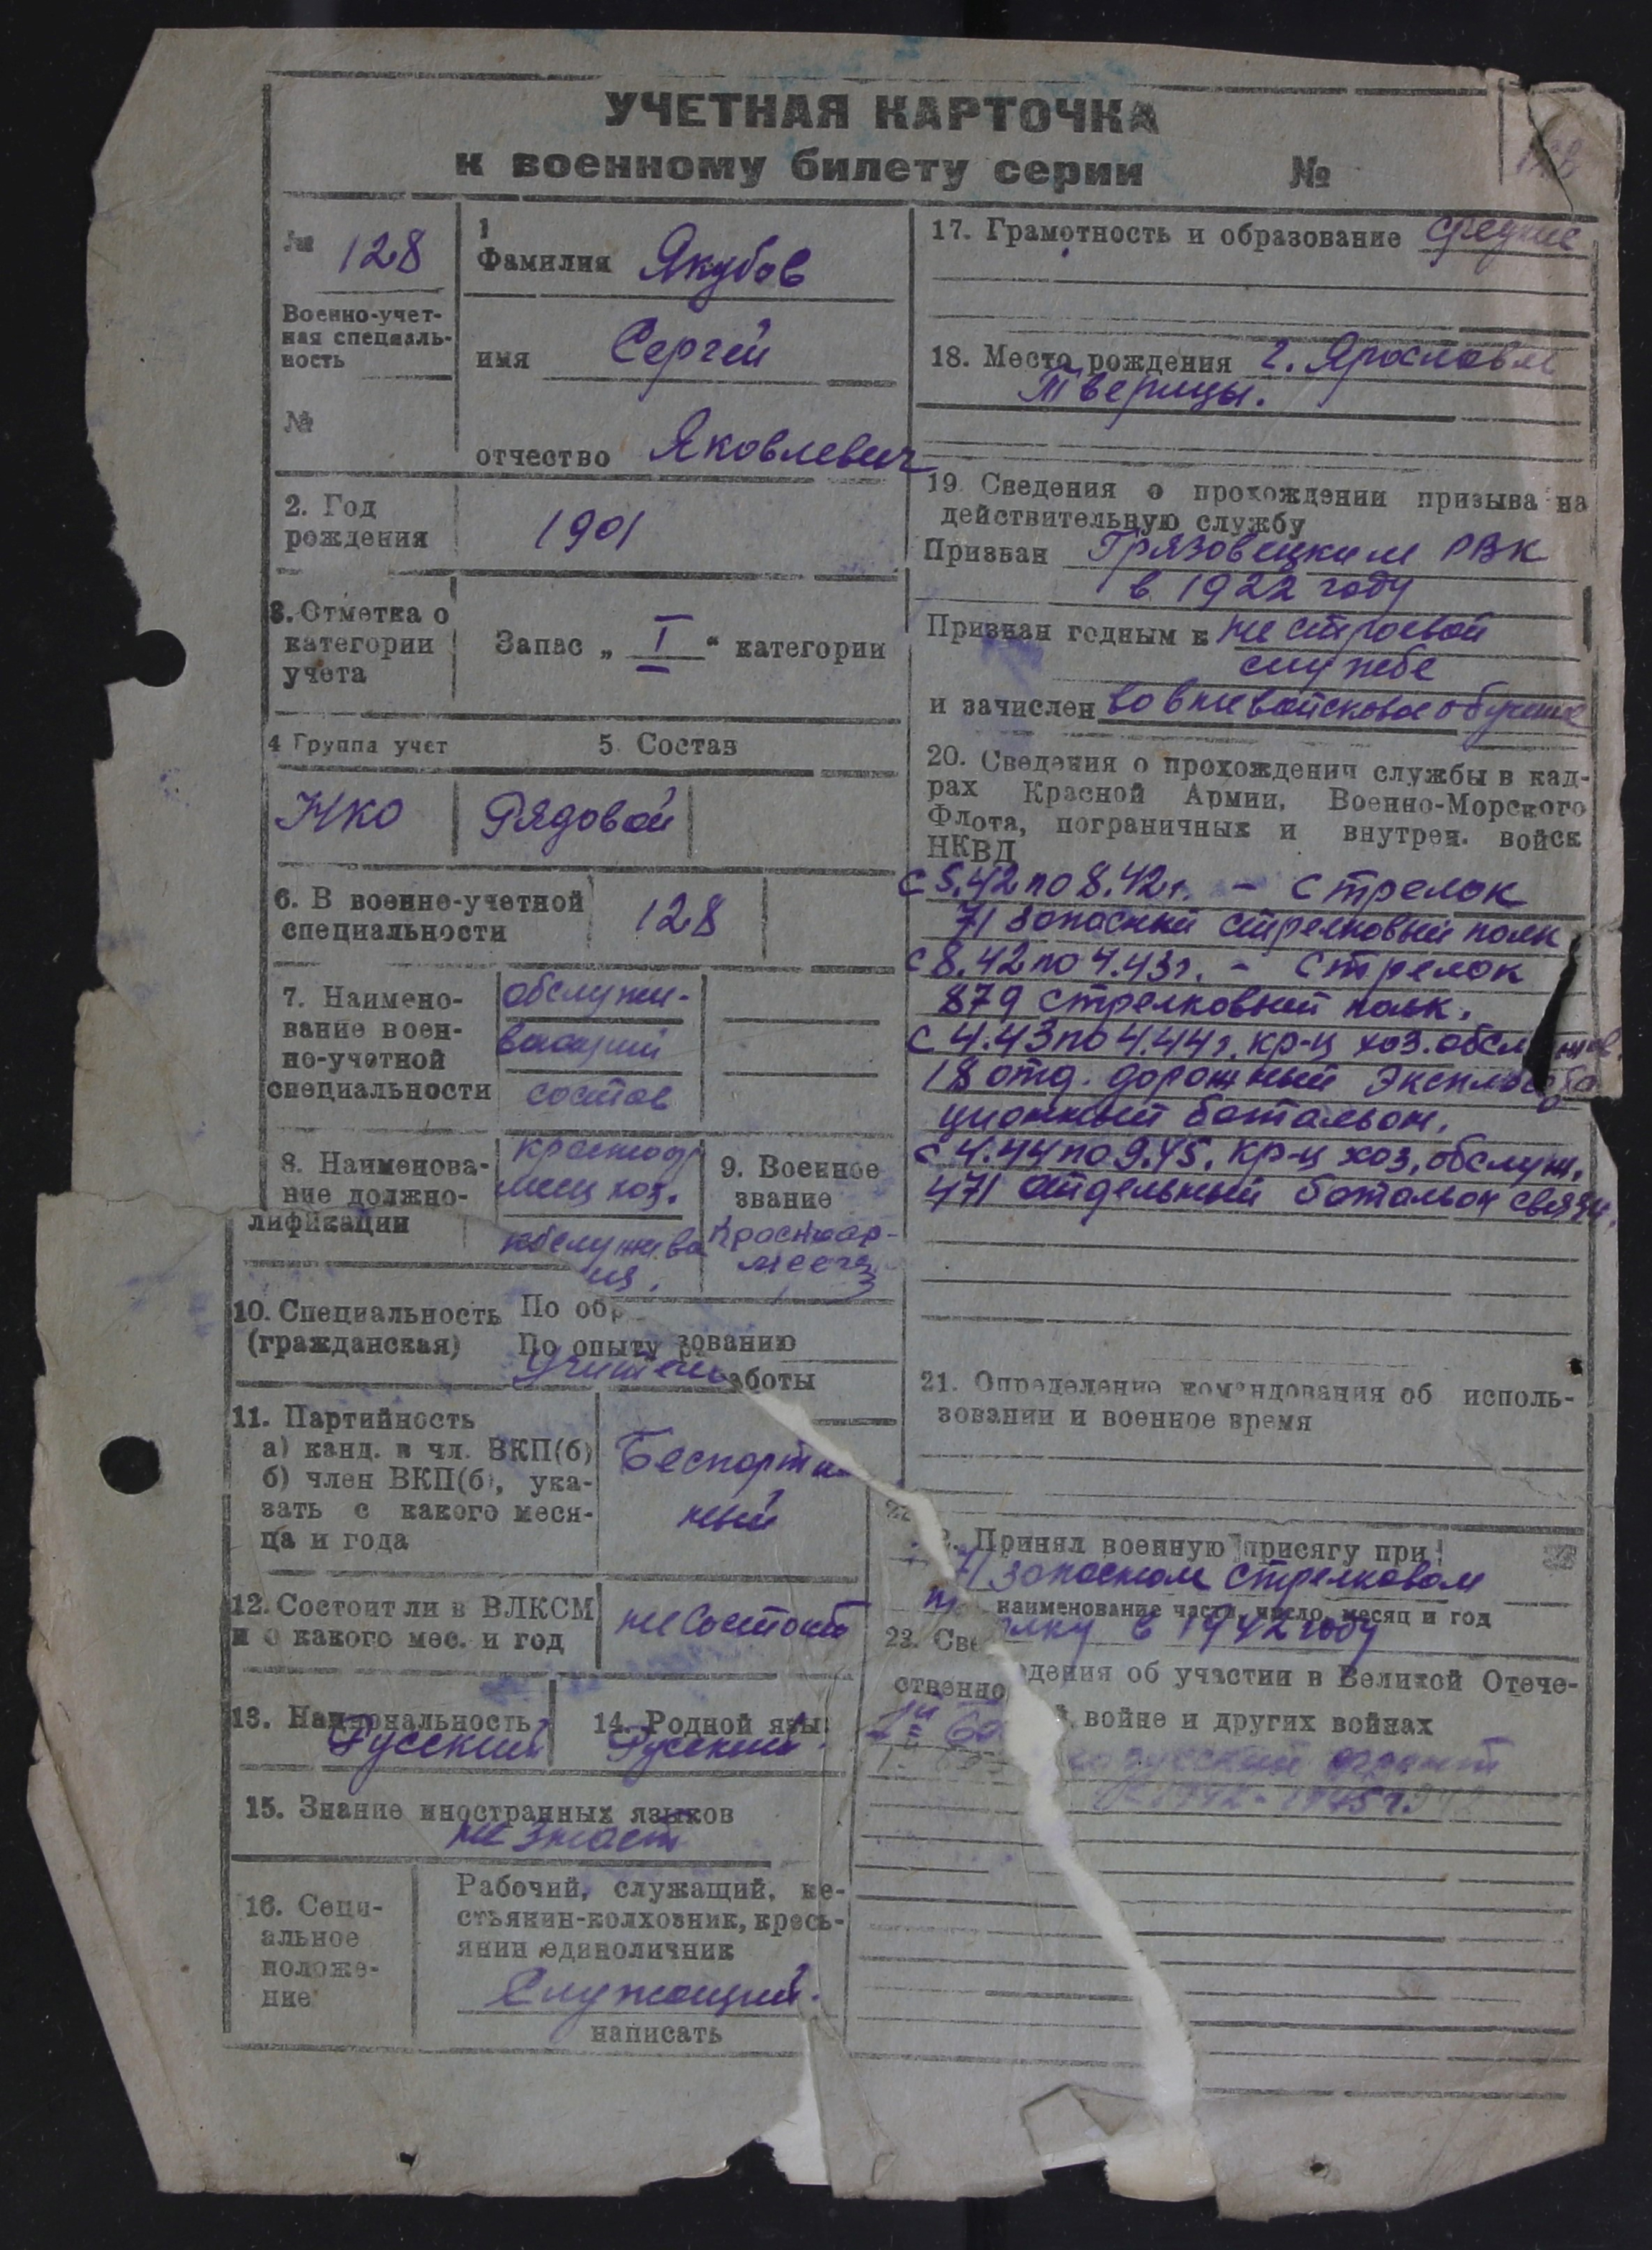 УЧЕТНАЯ КАРТОЧКА
к военному билету серии №
128
№ 128
Военно-учет-
ная специаль-
ность
№
1
Фамилия Якубов
имя Сергей
отчество Яковлевич
2. Год
рождения
1901
3. Отметка о
категории
учета
Запас „ I " категории
4 Группа учет
5. Состав
НКО
Рядовой
6. В военно-учетной
специальности
128
7. Наимено-
вание воен-
но-учетной
специальности
обслужи-
вающий
состав
8. Наименова-
ние должно-
лификации
красноар
меец хоз.
обслужива
9. Военное
звание
Красноар-
меец
10. Специальность
(гражданская)
По обр
зованию
По опыту
аботы
Учитель
11. Партийность
а) канд. в чл. ВКП(б)
б) член ВКП(б), ука-
зать с какого меся-
ца и года
Беспартий
ный
12. Состоит ли в ВЛКСМ
и с какого мес. и год
не состоит
13. Национальность
Русский
14. Родной язы
Русский
15. Знание иностранных языков
не знает
16. Соци-
альное
положе-
ние
Рабочий, служащий, ке-
стьянин-колхозник, кресь-
янин единоличник
Служащий.
написать
17. Грамотность и образование среднее
18. Место рождения г. Ярославль
Тверицы.
19. Сведения о прохождении призыва на
действительную службу
Призван Грязовецким РВК
в 1922 году
Признан годным к не строевой
службе
и зачислен во вневойсковое обучение
20. Сведения о прохождении службы в кад-
рах Красной Армии, Военно-Морского
Флота, пограничных и внутрен. войск
НКВД
с 5.42 по 8.42 г. - стрелок
71 запасный стрелковый полк
с 8.42 по 4.43 г. - стрелок
879 стрелковый полк.
с 4.43 по 4.44 г. кр-ц хоз. обслужив.
18 отд. дорожный эксплоата
ционный батальон.
с 4.44 по 9.45. кр-ц хоз. обслуж.
471 отдельный батальон связи.
21. Определение командования об исполь-
зовании и военное время
22. Принял военную присягу при
71 запасном стрелковом
наименование части, число, месяц и год
полку в 1942 году
23. Сведения об участии в Великой Отече-
ственной войне и других войнах
русский фронт
1942 - 1945 г.